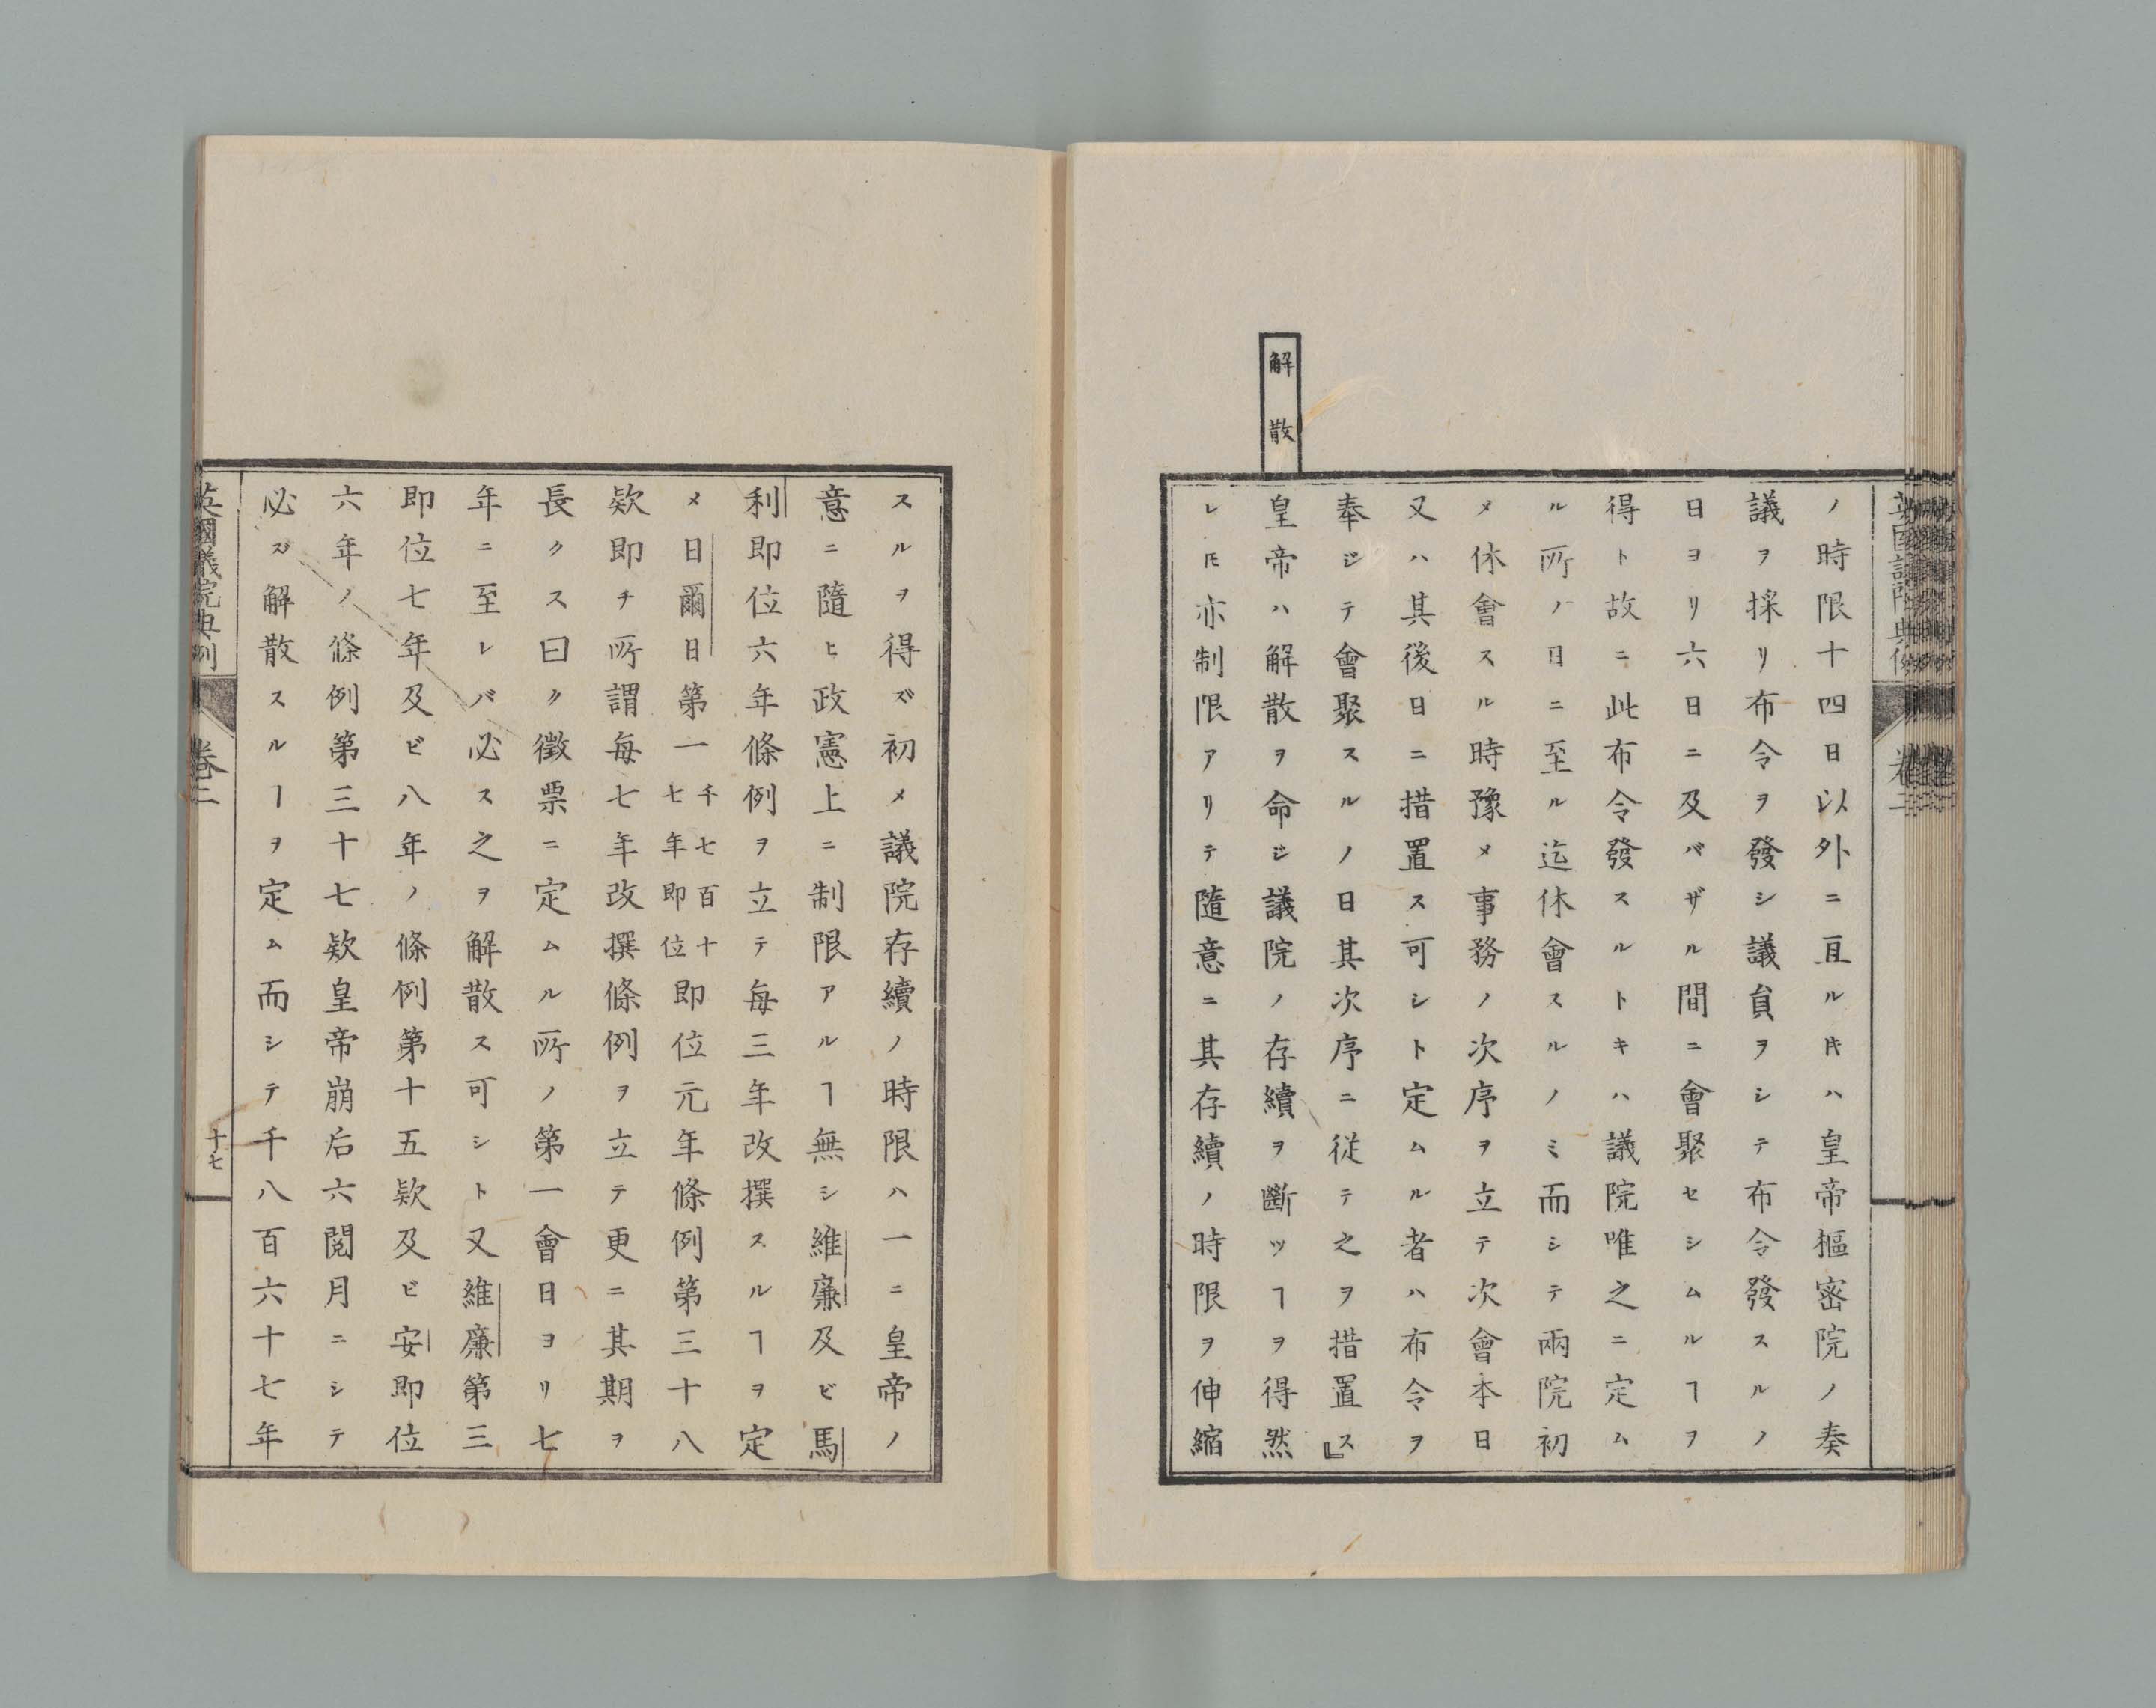 解散
ノ時限十四日以外ニ亘ルキハ皇帝樞密院ノ奏
議ヲ採リ布令ヲ發シ議員ヲシテ布令發スルノ
日ヨリ六日ニ及バザル間ニ會聚セシムルヿヲ
得ト故ニ此布令發スルトキハ議院唯之ニ定ム
ル所ノ日ニ至ル迄休會スルノミ而シテ兩院初
メ休會スル時豫メ事務ノ次序ヲ立テ次會本日
又ハ其後日ニ措置ス可シト定ムル者ハ布令ヲ
奉ジテ會聚スルノ日其次序ニ從テ之ヲ措置ス』
皇帝ハ解散ヲ命ジ議院ノ存續ヲ斷ツヿヲ得然
レ𪜈亦制限アリテ隨意ニ其存續ノ時限ヲ伸縮
スルヲ得ズ初メ議院存續ノ時限ハ一ニ皇帝ノ
意ニ隨ヒ政憲上ニ制限アルヿ無シ維廉及ビ馬
利即位六年條例ヲ立テ每三年改撰スルヿヲ定
メ日爾日第一千七百十七年即位即位元年條例第三十八
欵即チ所謂每七年改撰條例ヲ立テ更ニ其期ヲ
長クス曰ク徵票ニ定ムル所ノ第一會日ヨリ七
年ニ至レバ必ス之ヲ解散ス可シト又維廉第三
即位七年及ビ八年ノ條例第十五欵及ビ安即位
六年ノ條例第三十七欵皇帝崩后六閱月ニシテ
必ズ解散スルヿヲ定ム而シテ千八百六十七年
英國議院典例
卷二
十七